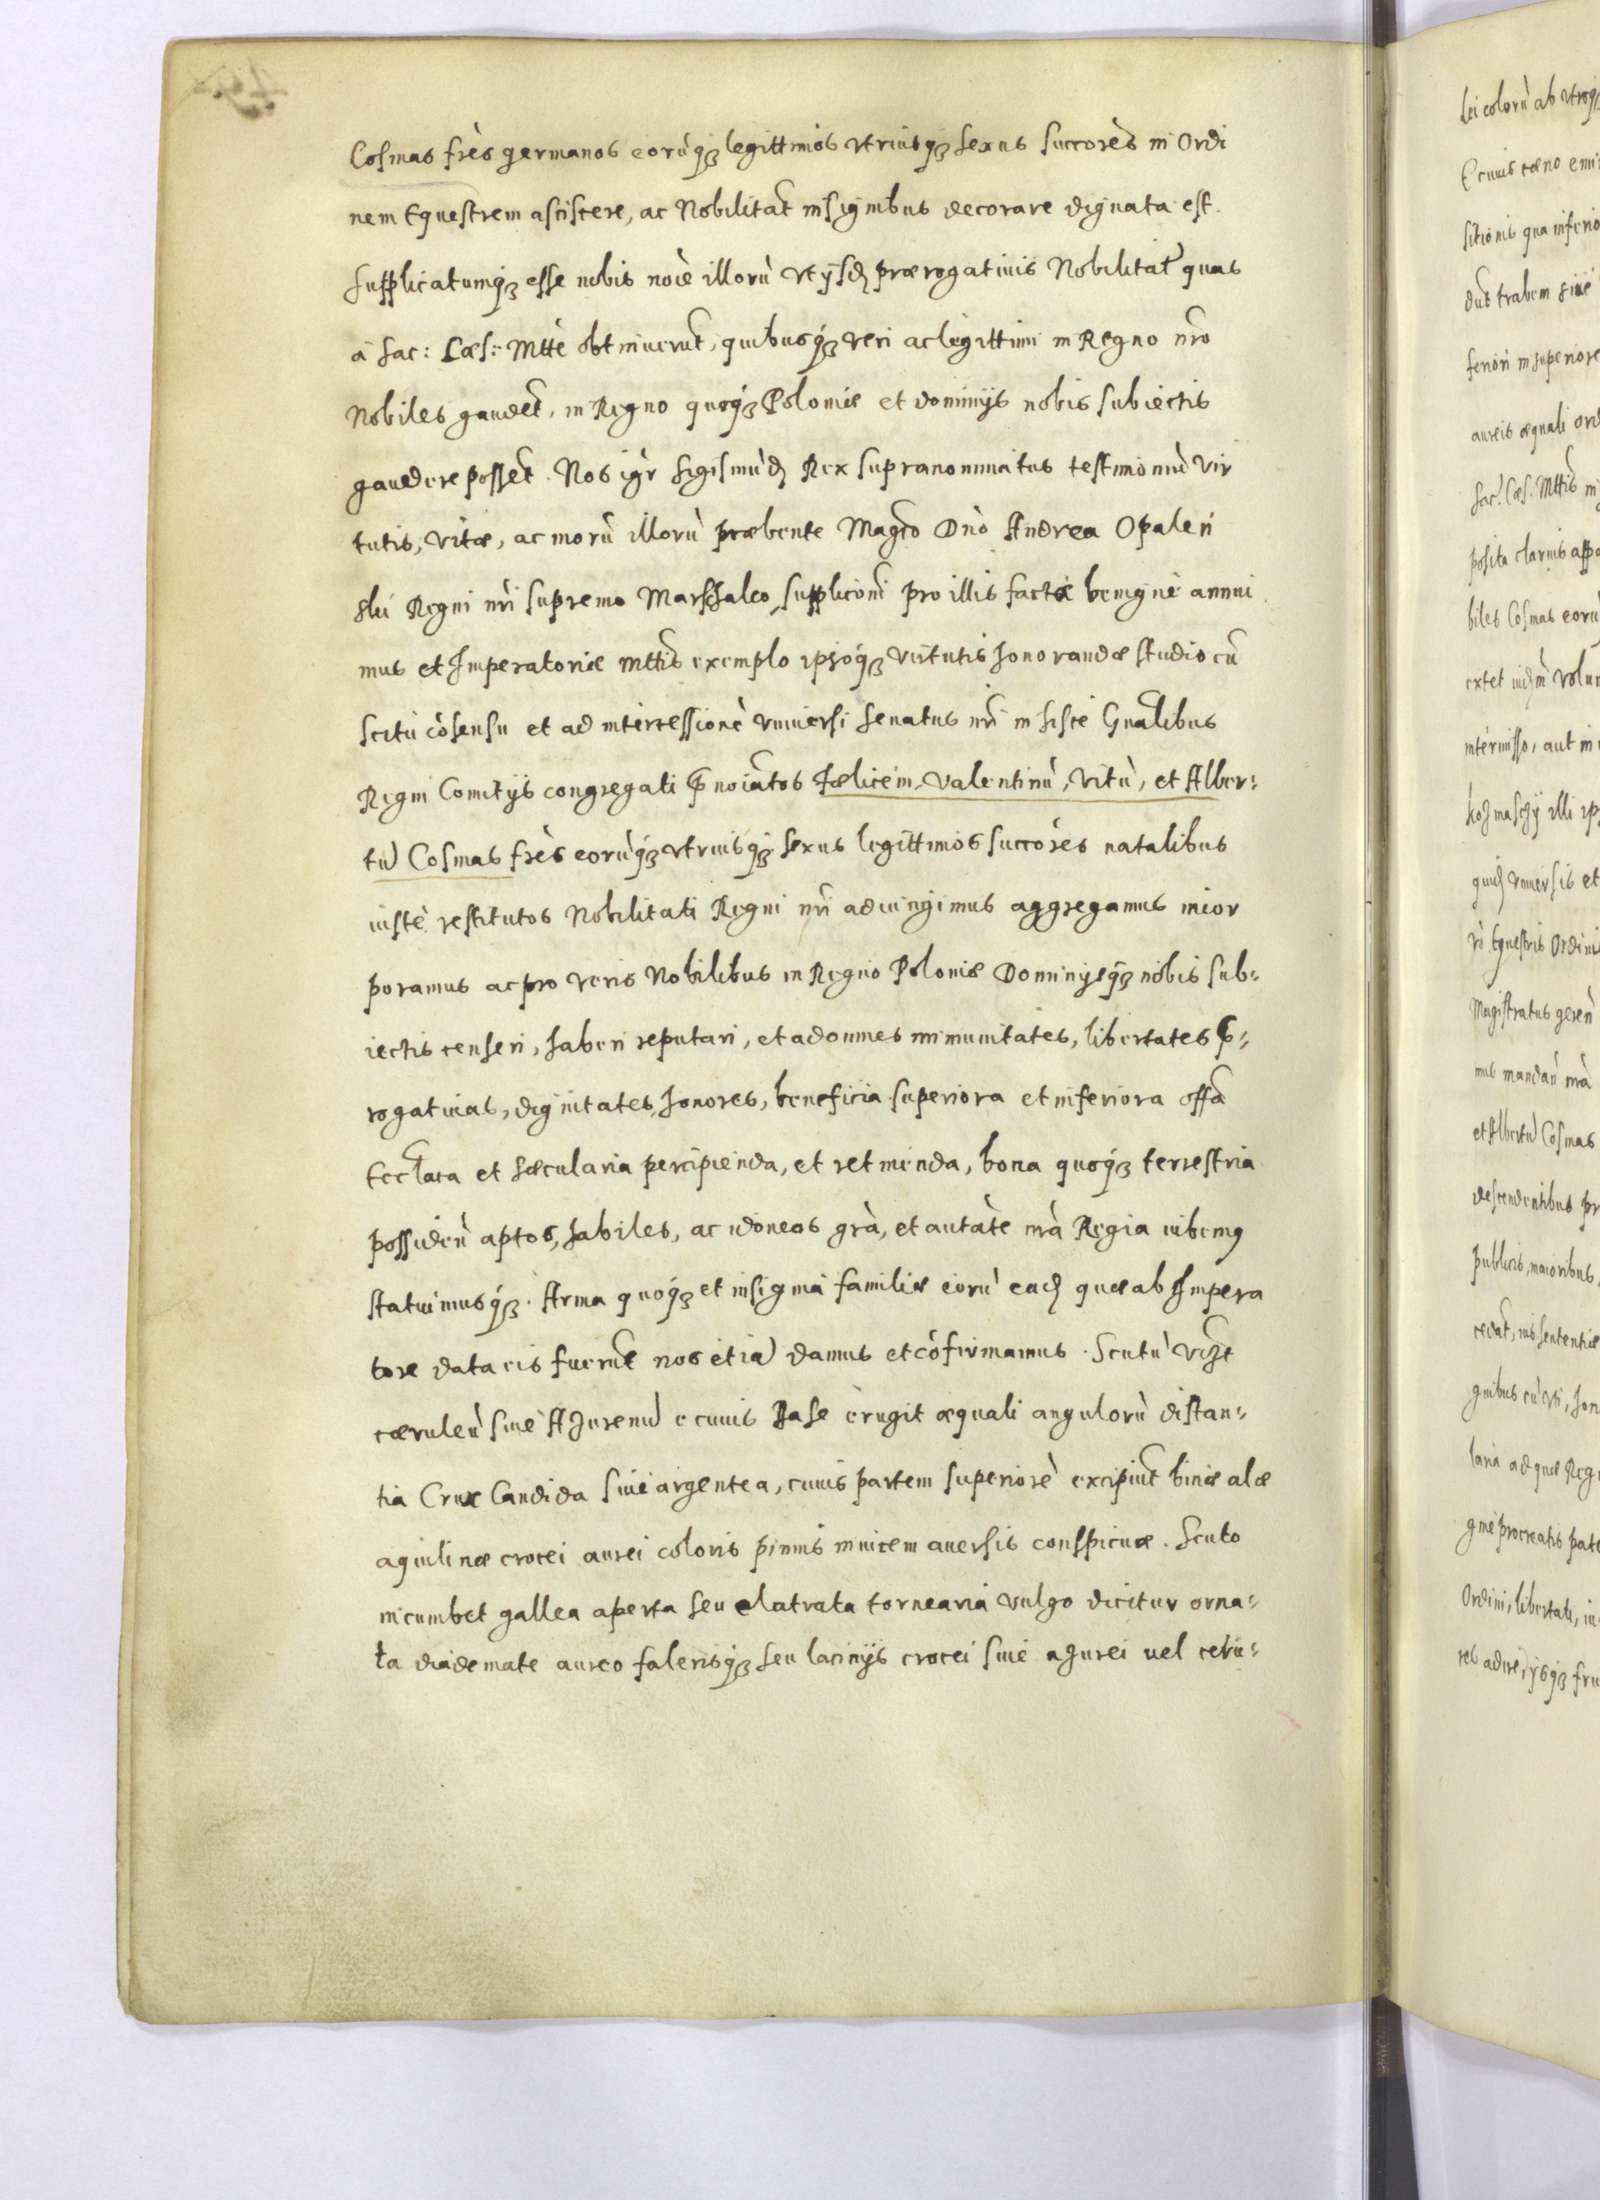 Cosmas frès germanos eorùq₃ legittimos vtriusq₃ sexus succores in Ordi
nem Equestrem asciscere, ac Nobilitat insignibus decorare dignata est.
supplicatumq₃ esse nobis noiè illorù vt ijsd prærogatiuis Nobilitat quas
à Sac: Cæs: Mtte obtinuerut, quibusq₃ veri ac legittimi in Regno nro
Nobiles gaudet, in Regno quoq₃ Poloniæ et dominijs nobis subiectis
gaudere posset. Nos igr Sigismùd Rex supranominatus testimoniù vir
tutis, vitæ, ac morù illorù præbente Magco Dnò Andrea Opalen
ski Regni nri supremo Marschalco, supplicioni pro illis factæ benignè annui
mus et Imperatoriæ Mttis exemplo ipsoq₃ virtutis honorandæ studio cu
scitu còsensu et ad intercessionè vniuersi Senatus nri in hisce Gnalibus
Regni Comitijs congregati pnoiatos Fælicem, Valentinù, Vitù, et Alber=
tu Cosmas frès eorùq₃ vtriusq₃ sexus legittimos succores natalibus
iustè restitutos Nobilitati Regni nri adiungimus aggregamus incor
poramus ac pro veris Nobilibus in Regno Poloniæ Dominijsq₃ nobis sub=
iectis censeri, haberi reputari, et ad omnes immunitates, libertates p=
rogatiuas, dignitates, honores, beneficia superiora et inferiora offa
Ecclata et sæcularia percipienda, et retinenda, bona quoq₃ terrestria
possiden aptos, habiles, ac idoneos grà, et autàte nrà Regia iubemq
statuimusq₃. Arma quoq₃ et insignia familiæ eorù ead quæ ab Impera
tore data eis fuerut nos etia damus et còfirmamus. Scutù vczt
cæruleù siue Azurenu e cuius Base èrugit æquali angulorù distan=
tia Crux Candida siue argentea, cuius partem superiorè excipiut binæ alæ
aquilinæ crocei aurei coloris pinnis inuicem auersis conspicuæ. Scuto
incumbet gallea aperta seu clatrata tornearia vulgo dicitur orna=
ta diademate aureo falerisq₃ seu lacinijs crocei siue azurei uel ceru=
lei colorù ab vtroq₃
E cuius cæno emi
sitionis qua inferio
dut trabem siue
feriori in superiore
aureis æquali ord
Sac. Cæs. Mttis in
posita clarius appa
biles Cosmas eorù
extet
intermisso, aut in
illi ips
quid vniuersis et
rò Equestris Ordini
Magistratus geren
mus mandan nrà
et Albertu Cosmas
descendentibus pr
publicis, maioribus,
cedat, ius sententiæ
gnibus
laria ad quæ Regn
gme procreatis pate
Ordini, libertati, iu
res adire, ijsq₃ fru